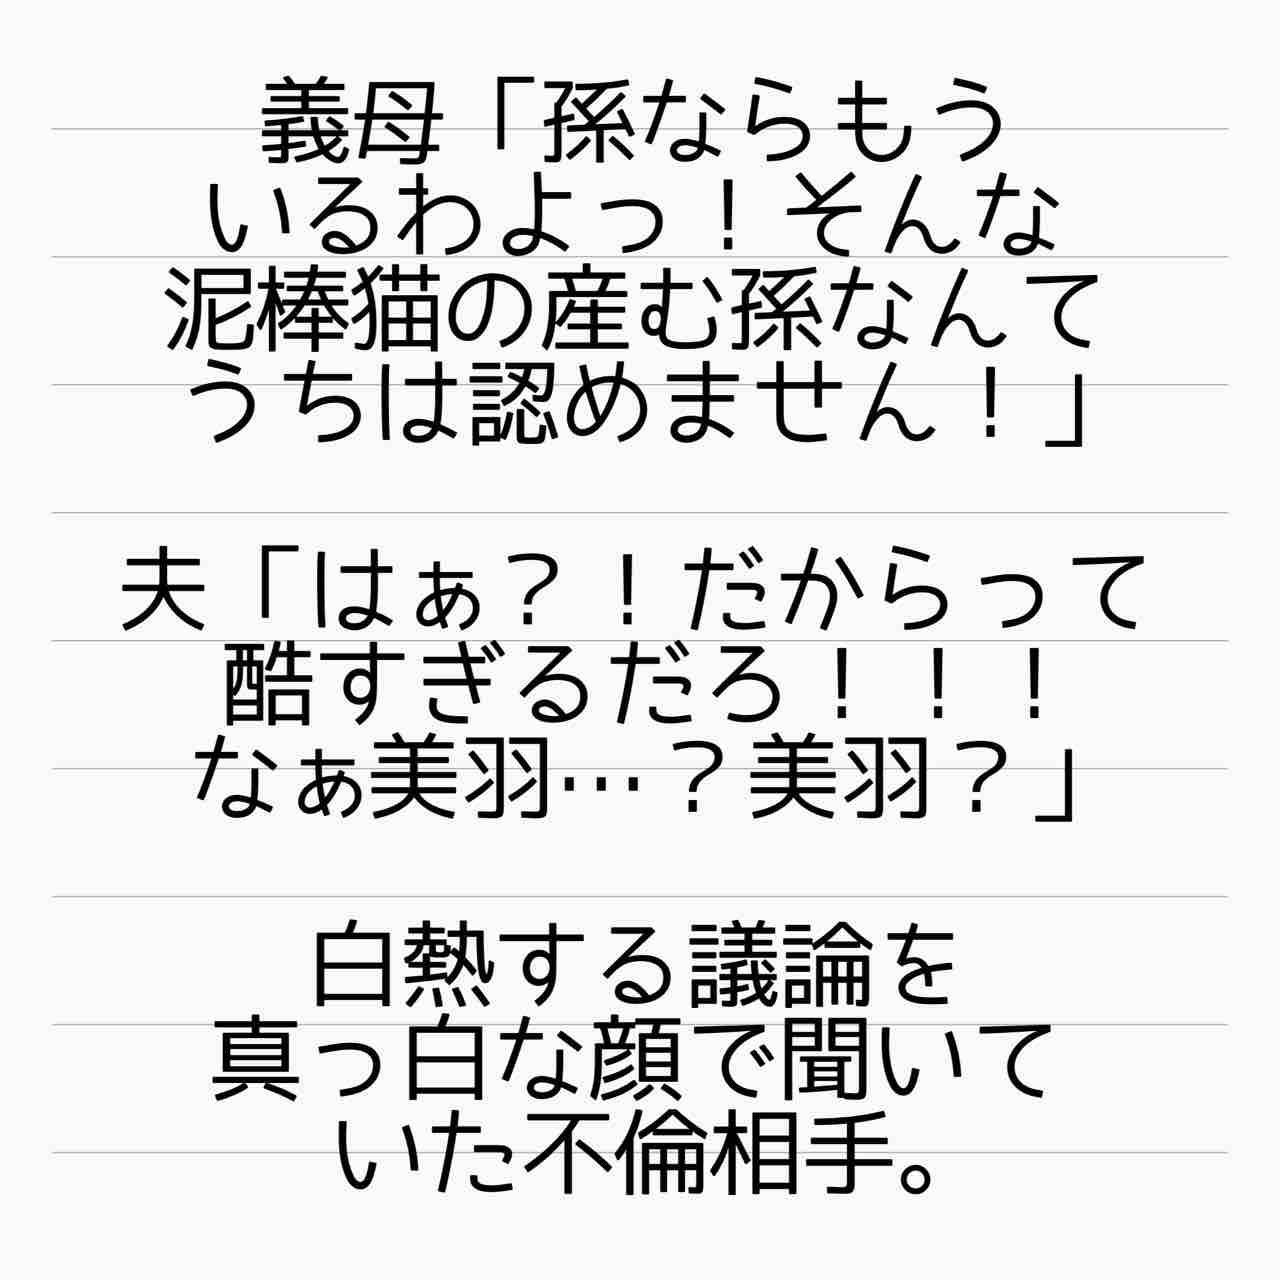 義母「孫ならもう
いるわよっ！そんな
泥棒猫の産む孫なんて
うちは認めません！」
夫「はぁ？！だからって
酷すぎるだろ！！！
なぁ美羽…？美羽？」
白熱する議論を
真っ白な顔で聞いて
いた不倫相手。